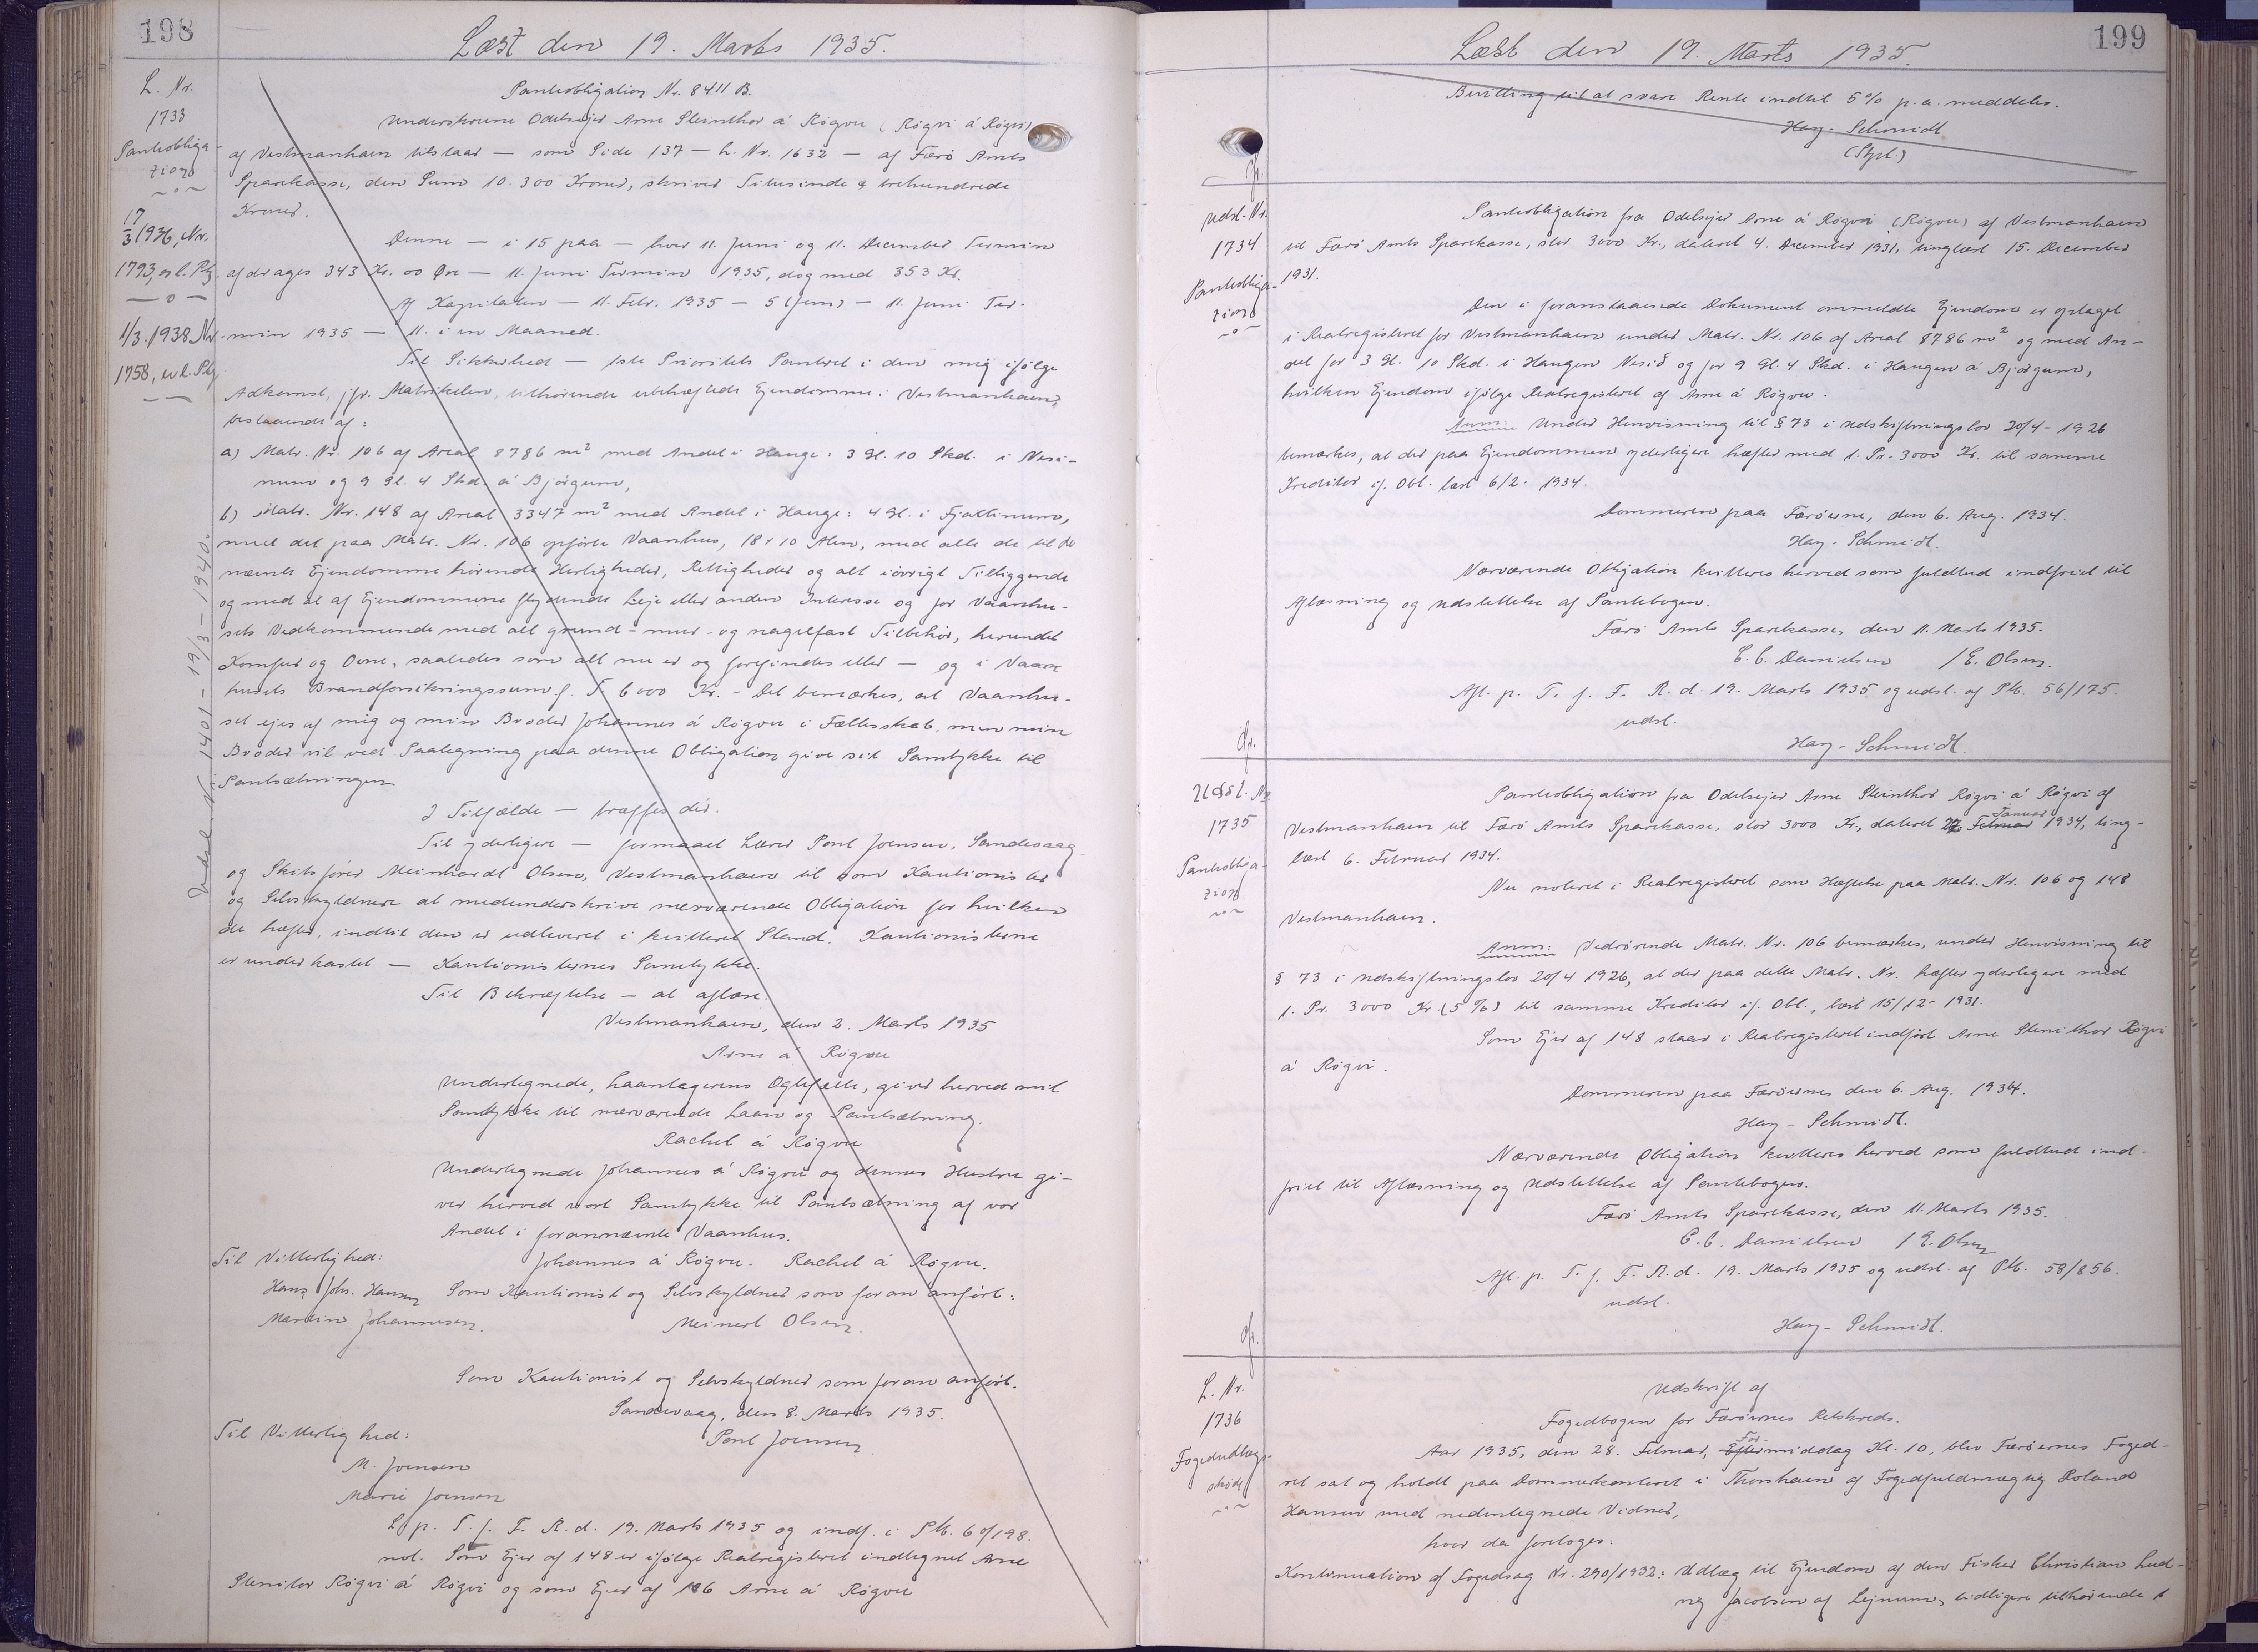 198
Læst den 19. Marts 1935.
L. Nr.
1733
Pantobliga-
tion
17/3 1936, Nr.
1793, asl. Ptg.
1/3. 1938 Nr.
1758, asl. Ptg.
Udsl. Nr. 1401 - 19/3 - 1940.
Pantobligation Nr. 8411 B.
Underskrevne Odelsejer Arne Steinthor á Rógvu (Rógvi á Rógvi)
af Vestmanhavn tilstaar — som Side 137 — L. Nr. 1632 — af Færø Amts
Sparekasse, den Sum 10.300 Kroner, skriver Titusinde & trehundrede
Kroner.
Denne — i 15 paa — hver 11. Juni og 11. December Termin
afdrages 343 Kr. 00 Øre — 11. Juni Termin 1935, dog med 353 Kr.
Af Kapitalen — 11. Febr. 1935 — 5 (fem) — 11. Juni Ter-
min 1935 — 11. i en Maaned.
Til Sikkerhed — 1ste Prioritets Panteret i den mig ifølge
Adkomst, jfr. Matrikelen, tilhørende ubehæftede Ejendomme i Vestmanhavn,
bestaaende af:
a) Matr. Nr. 106 af Areal 8786 m² med Andel i Hauge: 3 Gl. 10 Skd. i Nesi-
num og 9 Gl. 4 Skd. á Bjørgum,
b) Matr. Nr. 148 af Areal 3347 m² med Andel i Hauge: 4 Gl. i Fjallinum,
med det paa Matr. Nr. 106 opførte Vaanhus, 18 x 10 Alen, med alle de til de
nævnte Ejendomme hørende Herligheder, Rettigheder og alt iøvrigt Tilliggende
og med al af Ejendommene flydende Leje eller anden Interesse og for Vaanhu-
sets Vedkommende med alt grund- mur- og nagelfast Tilbehør, herunder
Komfur og Ovne, saaledes som alt nu er og forefindes eller — og i Vaan-
husets Brandforsikringssum f. T. 6000 Kr. - Det bemærkes, at Vaanhu-
set ejes af mig og min Broder Johannes á Rógvu i Fællesskab, men min
Broder vil ved Paategning paa denne Obligation give sit Samtykke til
Pantsætningen
I Tilfælde — træffes dér.
Til yderligere — formaaet Lærer Poul Joensen, Sandevaag
og Skibsfører Meinhardt Olsen, Vestmanhavn til som Kautionister
og Selvskyldnere at medunderskrive nærværende Obligation for hvilken
de hæfter, indtil den er udleveret i kvitteret Stand. Kautionisterne
er underkastet — Kautionisternes Samtykke.
Til Bekræftelse — at aflæse.
Vestmanhavn, den 2. Marts 1935
Arne á Rógvu
Undertegnede, Laantagerens Ægtefælle, giver herved mit
Samtykke til nærværende Laan og Pantsætning.
Rachel á Rógvu
Undertegnede Johannes á Rógvu og dennes Hustru gi-
ver herved vort Samtykke til Pantsætning af vor
Andel i forannævnte Vaanhus.
Til Vitterlighed: Johannes á Rógvu. Rachel á Rógvu.
Hans Johs. Hansen Som Kautionist og Selvskyldner som foran anført:
Martin Johannesen. Meinert Olsen.
Som Kautionist og Selvskyldner som foran anført.
Sandevaag, den 8. Marts 1935.
Til Vitterlighed: Poul Joensen.
M. Joensen
Marie Joensen
L. p. T. f. F. R. d. 19. Marts 1935 og indf. i Ptb. 60/198.
not. Som Ejer af 148 er ifølge Realregisteret indtegnet Arne
Steintor Rógvi á Rógvi og som Ejer af 106 Arne á Rógvu
199
Læst den 19. Marts 1935.
Bevilling til at svare Rente indtil 5% p.a. meddeles.
Hay-Schmidt
(Stpl.)
Gr.
Udsl. Nr.
1734
Pantobliga-
tion
Pantobligation fra Odelsejer Arne á Rógvu (Rógvu) af Vestmanhavn
til Færø Amts Sparekasse, stor 3000 Kr., dateret 4. December 1931, tinglæst 15. December
1931.
Den i foranstaaende Dokument ommeldte Ejendom er optaget
i Realregisteret for Vestmanhavn under Matr. Nr. 106 af Areal 8786 m² og med An-
del for 3 Gl. 10 Skd. i Haugen Nesið og for 9 Gl. 4 Skd. i Haugen á Bjørgum,
hvilken Ejendom ifølge Realregisteret af Arne á Rógvu.
Anm: Under Henvisning til § 73 i Udskiftningslov 20/4-1926
bemærkes, at der paa Ejendommen yderligere hæfter med 1. Pr. 3000 Kr. til samme
Kreditor if. Obl. læst 6/2- 1934.
Dommeren paa Færøerne, den 6. Aug. 1934.
Hay-Schmidt.
Nærværende Obligation kvitteres herved som fuldtud indfriet til
Aflæsning og Udslettelse af Pantebogen.
Færø Amts Sparekasse, den 11. Marts 1935.
C. C. Danielsen / E. Olsen.
Afl. p. T. f. F. R. d. 19. Marts 1935 og udsl. af Ptb. 56/175.
udsl.
Hay-Schmidt.
Gr.
Udsl. Nr.
1735
Pantobliga-
tion
Pantobligation fra Odelsejer Arne Steinthor Rógvi á Rógvi af
Vestmanhavn til Færø Amts Sparekasse, stor 3000 Kr., dateret 27 Februar Januar 1934, ting-
læst 6. Februar 1934.
Nu noteret i Realregisteret som Hæftelse paa Matr. Nr. 106 og 148
Vestmanhavn.
Anm: Vedrørende Matr. Nr. 106 bemærkes, under Henvisning til
§ 73 i Udskiftningslov 20/4 1926, at der paa dette Matr. Nr. hæfter yderligere med
1. Pr. 3000 Kr. (5%) til samme Kreditor if. Obl., læst 15/12- 1931.
Som Ejer af 148 staar i Realregisteret indført Arne Steinthor Rógvi
á Rógvi.
Dommeren paa Færøerne, den 6. Aug. 1934.
Hay-Schmidt.
Nærværende Obligation kvitteres herved som fuldtud ind-
friet til Aflæsning og Udslettelse af Pantebogen.
Færø Amts Sparekasse, den 11. Marts 1935.
C. C. Danielsen / E. Olsen
Afl. p. T. f. F. R. d. 19. Marts 1935 og udsl. af Ptb. 58/856.
udsl.
Hay-Schmidt.
Gr.
L. Nr.
1736
Fogedudlægs-
skøde
Udskrift af
Fogedbogen for Færøernes Retskreds.
Aar 1935, den 28. Februar, Efter For-middag Kl. 10, blev Færøernes Foged-
ret sat og holdt paa Dommerkontoret i Thorshavn af Fogedfuldmægtig Roland
Hansen med nedentegnede Vidner,
hvor da foretoges:
Kontinuation af Fogedsag Nr. 290/1932: Udlæg til Ejendom af den Fisker Christian Lud-
vig Jacobsen af Lejnum, tidligere tilhørende